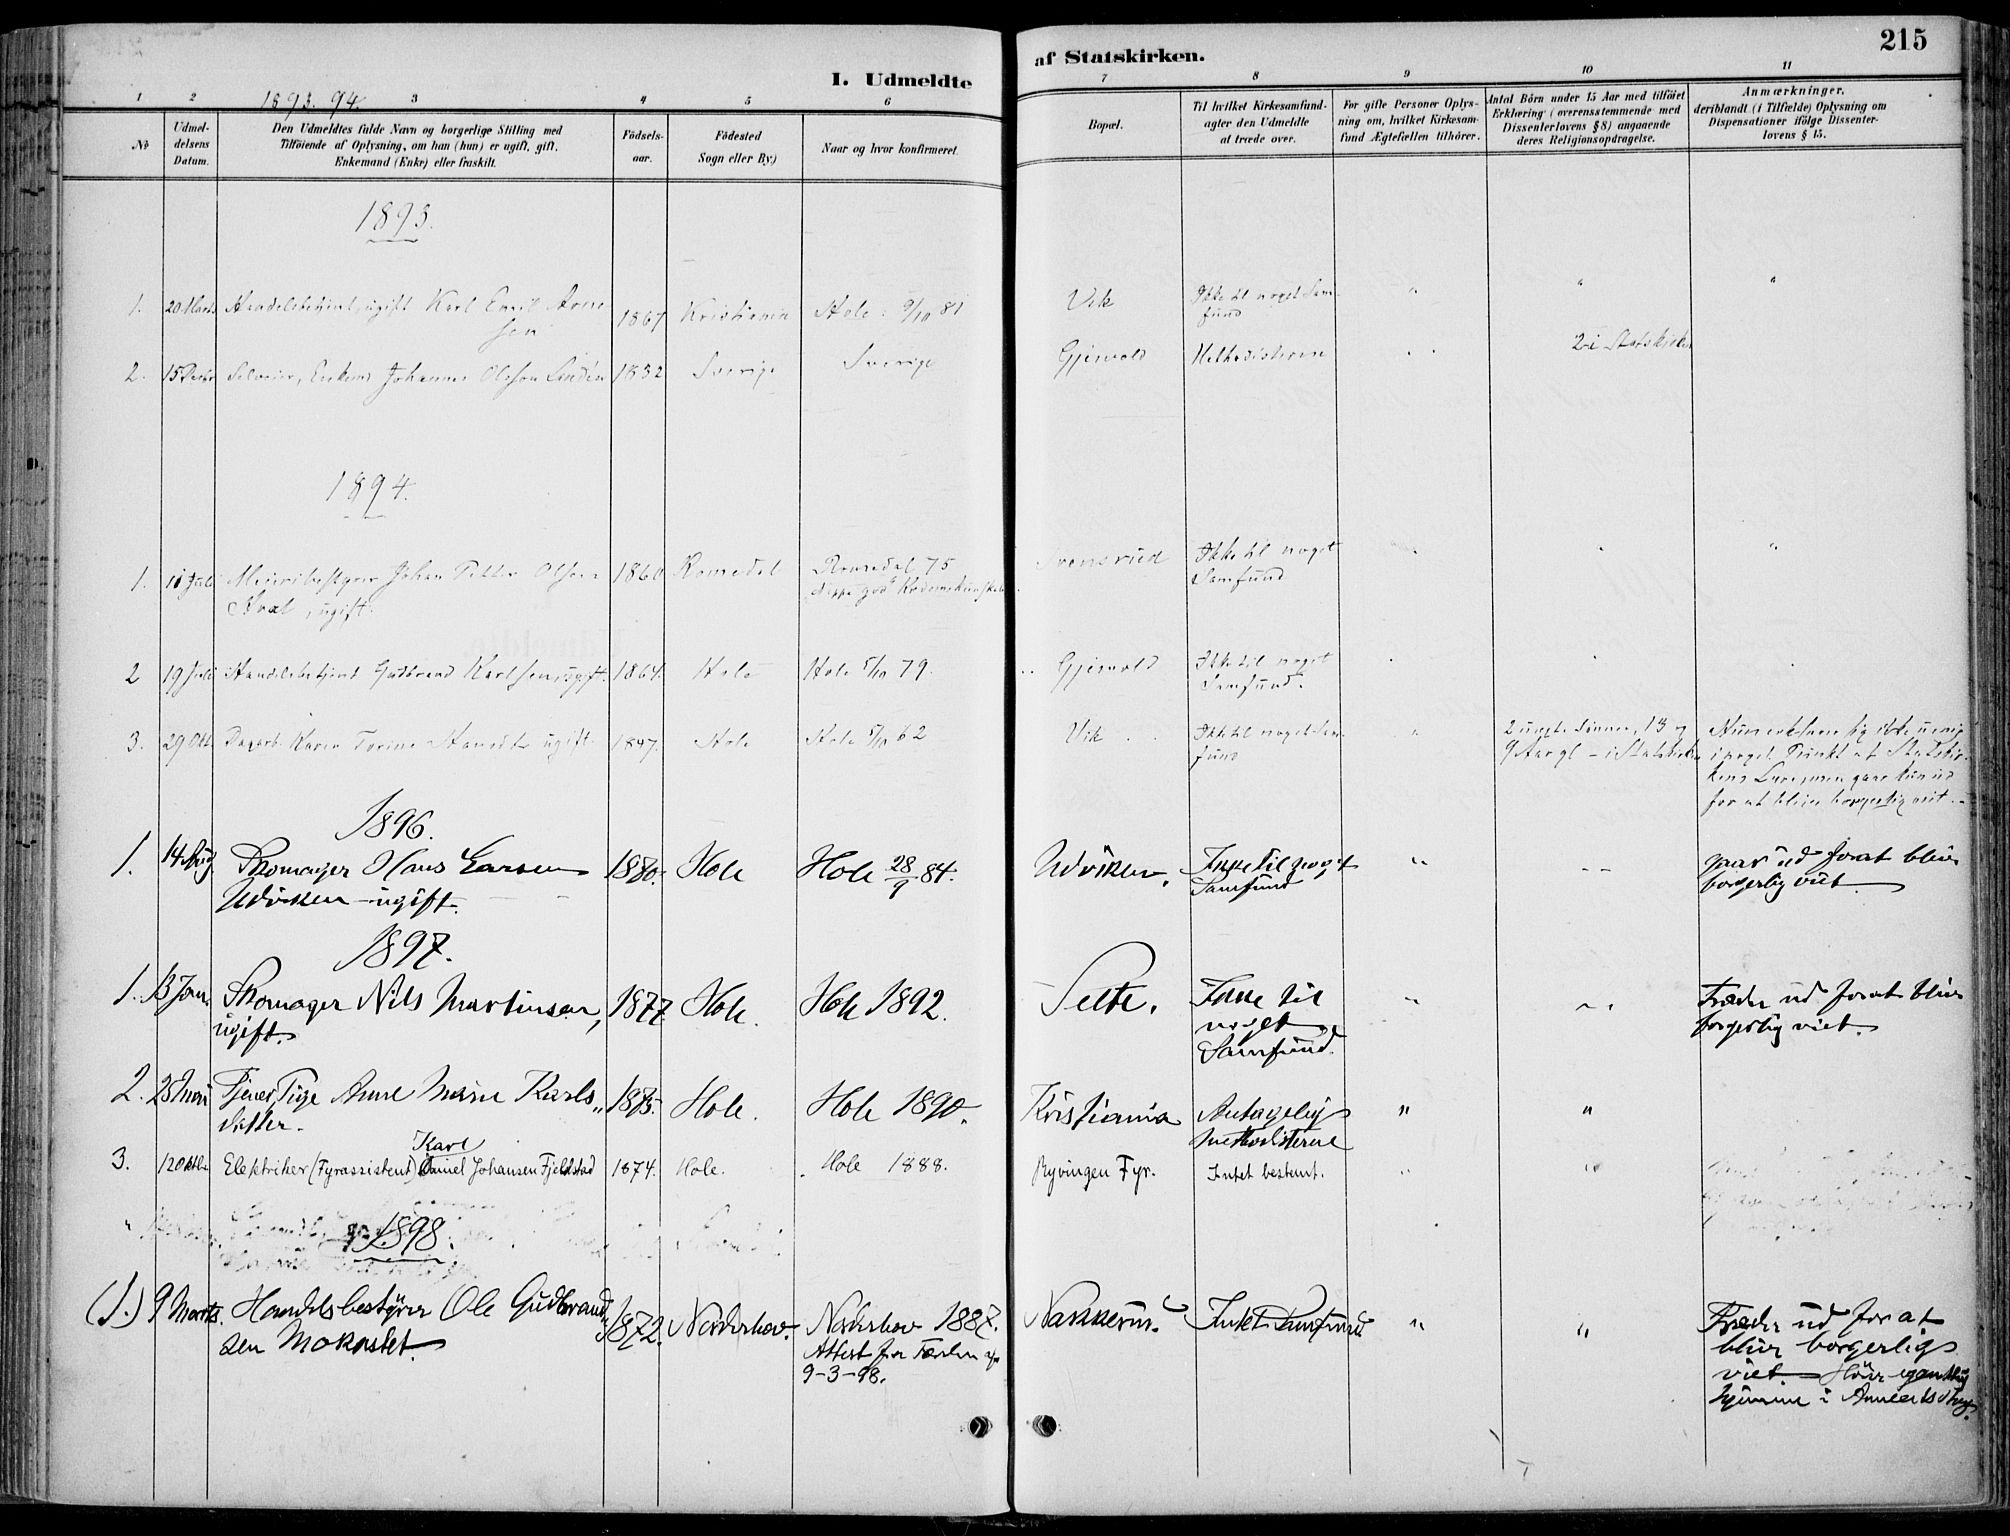 215
I. Udmeldte af Statskirken.
1 2 3 4 5 6 7 8 9 10 11
1893. 94.
No
Udmel-
delsens
Datum.
Den Udmeldtes fulde Navn og borgerlige Stilling med
Tilföiende af Oplysning, om han (hun) er ugift, gift,
Enkemand (Enke) eller fraskilt.
Födsels-
aar.
Födested
Sogn eller By)
Naar og hvor konfirmeret
Bopæl.
Til hvilket Kirkesamfund-
agter den Udmeldte
at træde over.
For gifte Personer Oplys-
ning om, hvilket Kirkesam-
fund Ægtefællen tilhörer.
Antal Börn under 15 Aar med tilföiet
Erklæring (overensstemmende med
Dissenterlovens § 8) angaaende
deres Religionsopdragelse.
Anmærkninger,
deriblandt (i Tilfælde) Oplysning om
Dispensationer ifölge Dissenter-
lovens § 15.
1893.
1. 20 Marts Handelsbetjent, ugift Karl Emil Arne 1867 Kristiania Hole 9/10 81 Vik Ikke til noget Sam-
sen fund
2. 15 Decbr Selveier, Enkem Johannes Olsson Lindén 1832 Sverige Sverige Gjesvold Methodisterne 2 i Statskirken
1894.
1. Juli Meieribestyrer Johan Petter Olsen 1860 Romedal Romedal 75 Svensrud Ikke til noget
, ugift. Samfund
2 19 Juli Handelsbetjent Gudbrand Karlsen, ugift. 1864. Hole Hole 5/10 79. Gjesvold Ikke til noget
Samfund.
3. 29 Okt. Dagarb. Karen Torine ugift 1847. Hole Hole 5/10 62 Vik Ikke til noget Sam- 2 uægte Sönner, 13 og
fund 9 Aar gl - i Statskirken
Hun erklærer sig ikke uenig
i noget Punkt af Statskir-
kens gaar kun ud
for at blive borgerlig viet.
1896.
1. 14 Aug Skomager Hans Larsen 1880. Hole Hole 28/9 84. Udviken. Ikke til noget " -- gaar ud forat blive
Udviken - ugift. Samfund borgerlig viet.
1897.
1. 13 Jan. Skomager Nils Martinsen, 1877 Hole. Hole 1892. Selte. Ikke til " Træder ud forat blive
ugift. noget borgerlig viet.
Samfund.
2. 28 Tjener, Pige Anne Marie Karls 1875. Hole. Hole 1890. Kristiania Antagelig " "
datter. methodisterne
Karl
3. 12 Oktbr Elektriker (Fyrassistent) Daniel Johansen Fjeldstad 1874. Hole. Hole 1888. Ryvingen Fyr. Intet bestemt. " "
1898.
(1.) 9 Marts. Handelsbestyrer Ole Gudbrand 1872. Norderhov. Norderhov 1887. Nakkerud. Intet Samfund " " Træder ud for at
sen Mokastet. Attest fra 9-3-98. blive borgerlig
viet.